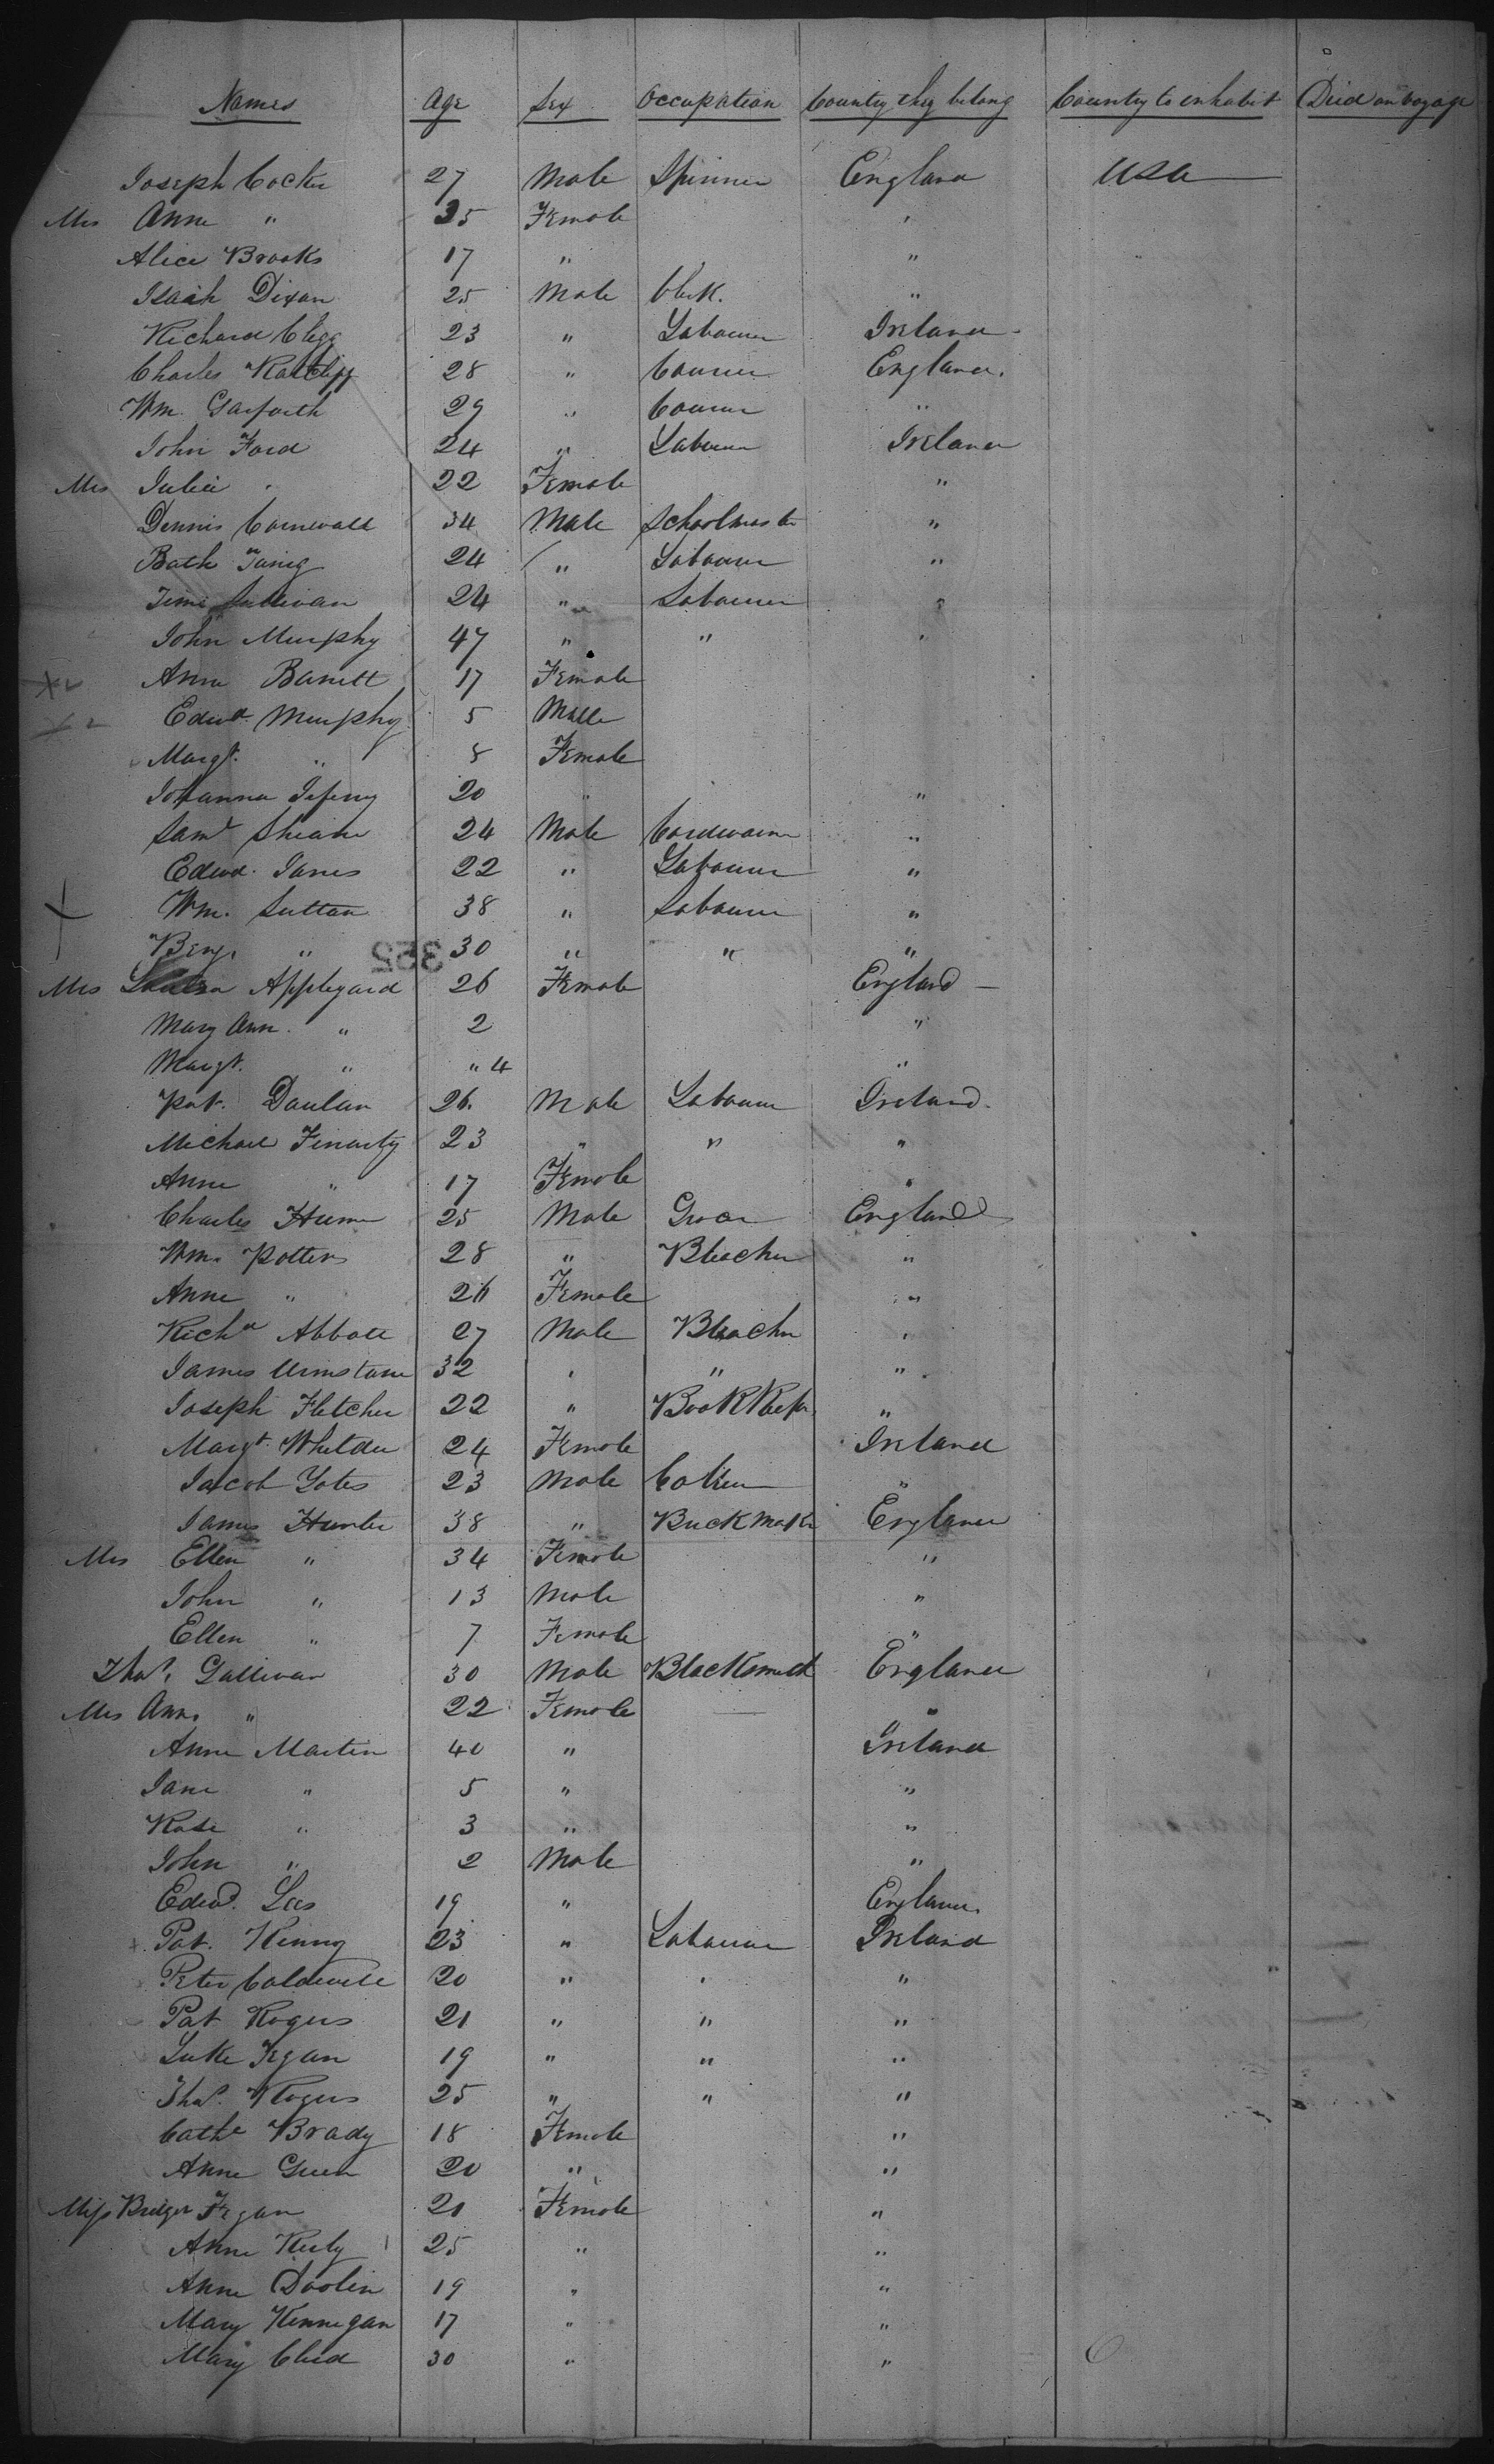 Names Age Sex Occupation Country they belong Country to inhabit Died on voyage
Joseph Cocker 27 Male Spinner England USA
Mrs Anne " 35 Female "
Alice Brooks 17 " "
Isaiah Dixon 25 Male Clerk. "
Richard Clegg 23 " Labourer Ireland
Charles Ratcliff 28 " England.
Wm. Garforth 29 " "
John Ford 24 " Labourer Ireland
Mrs Julia " 22 Female "
Dennis Cornwall 34 Male Schoolmaster "
24 " Labourer "
Sullivan 24 " Labourer "
John Murphy 47 " " "
Anne Barrett 17 Female
Edwd. Murphy 5 Male
Margt. " 8 Female
Johanna 20 " "
Saml 24 Male Cordwainer "
Edwd. Janes 22 " Labourer "
Wm. Sutton 38 " Labourer "
Benj. " 30 " " "
355
Mrs Applegard 26 Female England
Mary Ann. " 2 "
Margt. " " 4 "
Pat. Doulan 26. Male Labourer Ireland.
Michael Finarty 23 " " "
Anne " 17 Female "
Charles Hume 25 Male Grocer England
Wm. Potters 28 " Bleacher "
Anne " 26 Female "
Richd Abbott 27 Male Bleacher "
James Urmstone 32 " " "
Joseph Fletcher 22 " BookKeeper "
Margt. 24 Female Ireland
Jacob Yates 23 Male "
James Hunter 38 " England
Mrs Ellen " 34 Female "
John " 13 Male "
Ellen " 7 Female "
Thos. Gallivan 30 Male Blacksmith England
Mrs Ann. " 22 Female "
Anne Martin 40 " Ireland
Jane " 5 " "
Rose " 3 " "
John " 2 Male "
Edwd. Lees 19 " England
Pat. Kenny 23 " Labourer Ireland
Peter Caldwell 20 " " "
Pat Rogers 21 " " "
Luke Fegan 19 " " "
Thos. Rogers 25 " " "
Cathe Brady 18 Female "
Anne Green 20 " "
Miss Bridget Fegan 21 Female "
Anne 25 " "
Anne Doolin 19 " "
Mary Kennegan 17 " "
Mary 30 " "